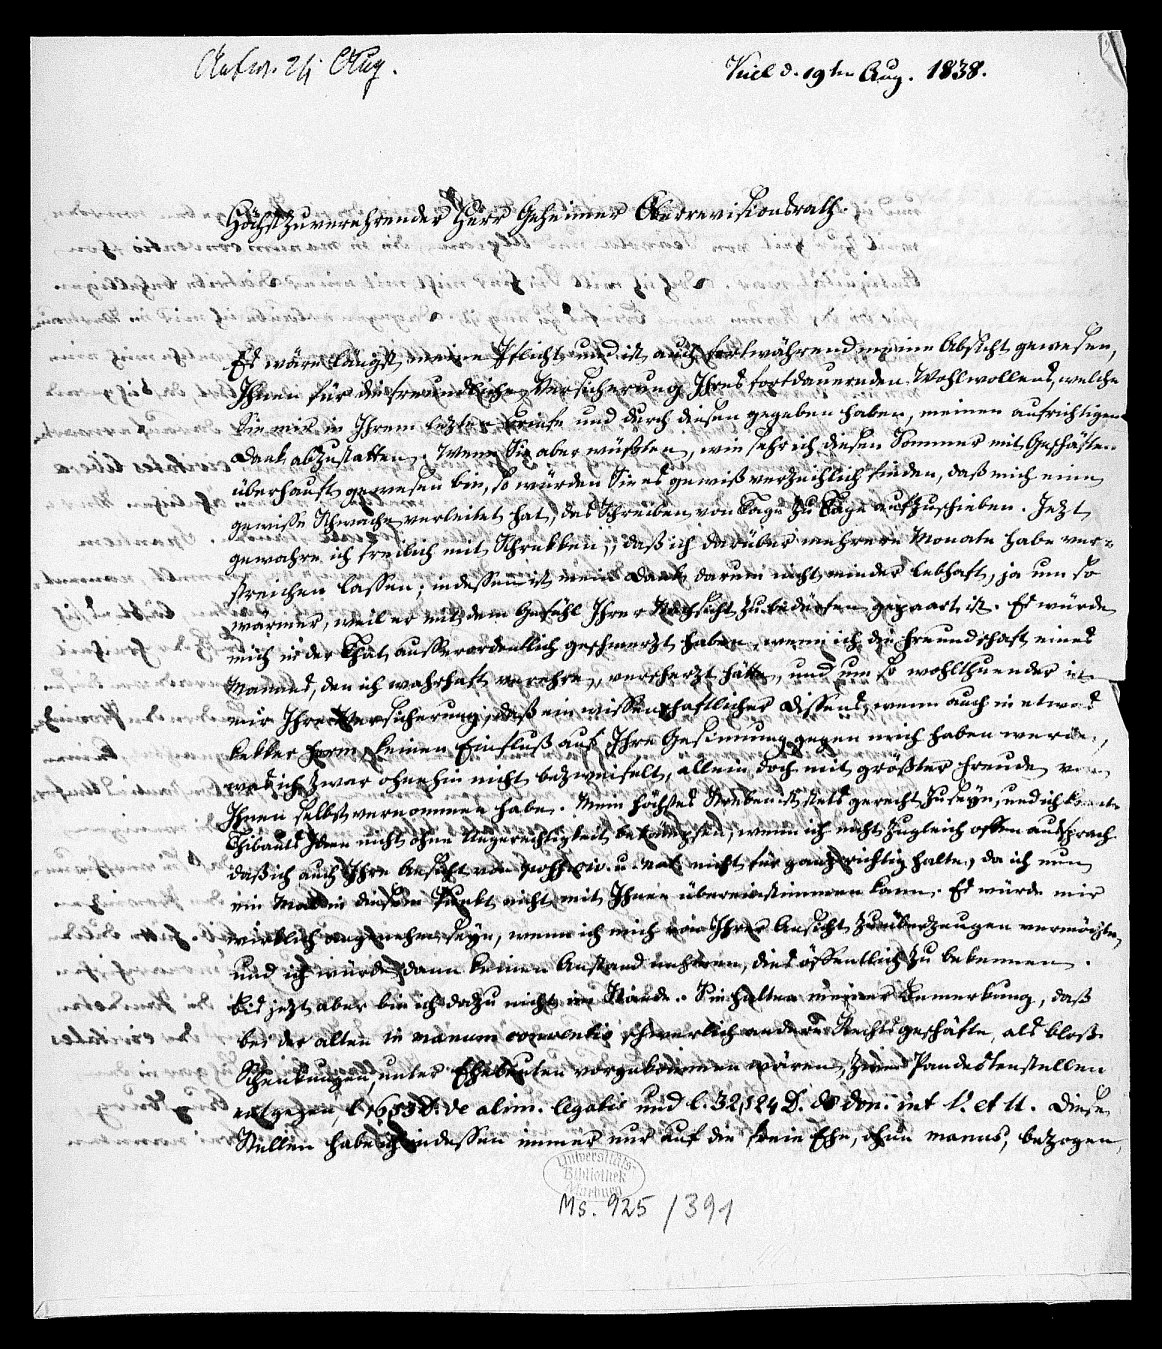 Antw. 24 Aug.
Kiel d. 19ten Aug. 1838.
Höchstzuverehrender Herr Geheimer Oberrevisionsrath.
Es wäre längst meine Pflicht und ist auch fortwährend meine Absicht gewesen,
Ihnen für die freundliche Versicherung Ihres fortdauernden Wohlwollens, welche
Sie mir in Ihrem lezten Briefe und durch diesen gegeben haben, meinen aufrichtigen
Dank abzustatten. Wenn Sie aber wüßten, wie sehr ich diesen Sommer mit Geschäften
überhäuft gewesen bin, so würden Sie es gewiß verzeihlich finden, daß mich eine
gewisse Schwäche verleitet hat, das Schreiben von Tage zu Tage aufzuschieben. Jezt
gewahre ich freilich mit Schrekken, daß ich darüber mehrere Monate habe ver-
streichen lassen; indessen ist mein Dank darum nicht minder lebhaft, ja um so
wärmer, weil er mit dem Gefühl Ihrer Nachsicht zu bedürfen gepaart ist. Es würde
mich in der That ausserordentlich geschmerzt haben, wenn ich die Freundschaft eines
Mannes, den ich wahrhaft verehre, verscherzt hätte, und um so wohlthuender ist
mir Ihre Versicherung, daß ein wissenschaftlicher Dissens, wenn auch in etwas
kekker Form, keinen Einfluß auf Ihre Gesinnung gegen mich haben werde,
was ich zwar ohnehin nicht bezweifelt, allein doch mit größter Freude von
Ihnen selbst vernommen habe. Mein höchstes Streben ist stets gerecht zu seyn, und ich konnte
Thibauts Ideen nicht ohne Ungerechtigkeit bekämpfen, wenn ich nicht zugleich offen aussprach
daß ich auch Ihre Ansicht von nicht für ganz richtig halte, da ich nun
ein Mal in diesem Punkt nicht mit Ihnen übereinstimmen kann. Es würde mir
wirklich angenehm seyn, wenn ich mich von Ihrer Ansicht zu überzeugen vermöchte,
und ich würde dann keinen Anstand nehmen, dies öffentlich zu bekennen.
Bis jezt aber bin ich dazu nicht im Stande. Sie halten meiner Bemerkung, daß
bei der alten in manum conventio schwerlich andere Rechtsgeschäfte, als bloße
Schenkungen, unter Eheleuten vorgekommen wären, zwei Pandectenstellen
entgegen, de alim. legatis und l. 32 D. de don. int V. et U. Diese
Stellen habe ich indessen immer nur auf die freie Ehe, ohne manus, bezogen,
Universitäts-
Bibliothek
Marburg
Ms. 925/391